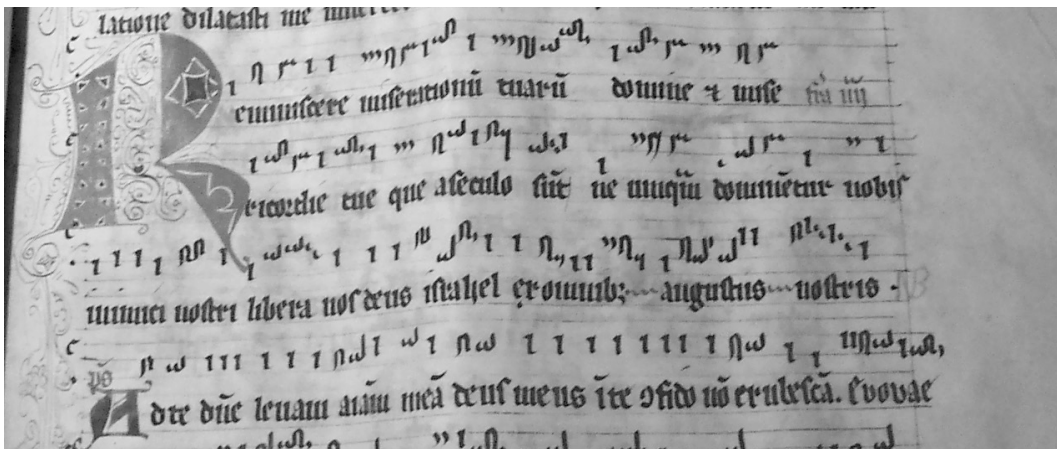 latione dilatasti me
Reminiscere miserationū tuarū domine ⁊ mise fīa iiij
ricordie tue que aseculo sūt ne umquā dominētur nobis
inimici nostri libera nos deus israhel ex omnibꝫ angustiis nostris .
ps̄
Ad te dn̄e levavi aīam meā deus meus ī te ꝯfido nō erubescā. Evovae